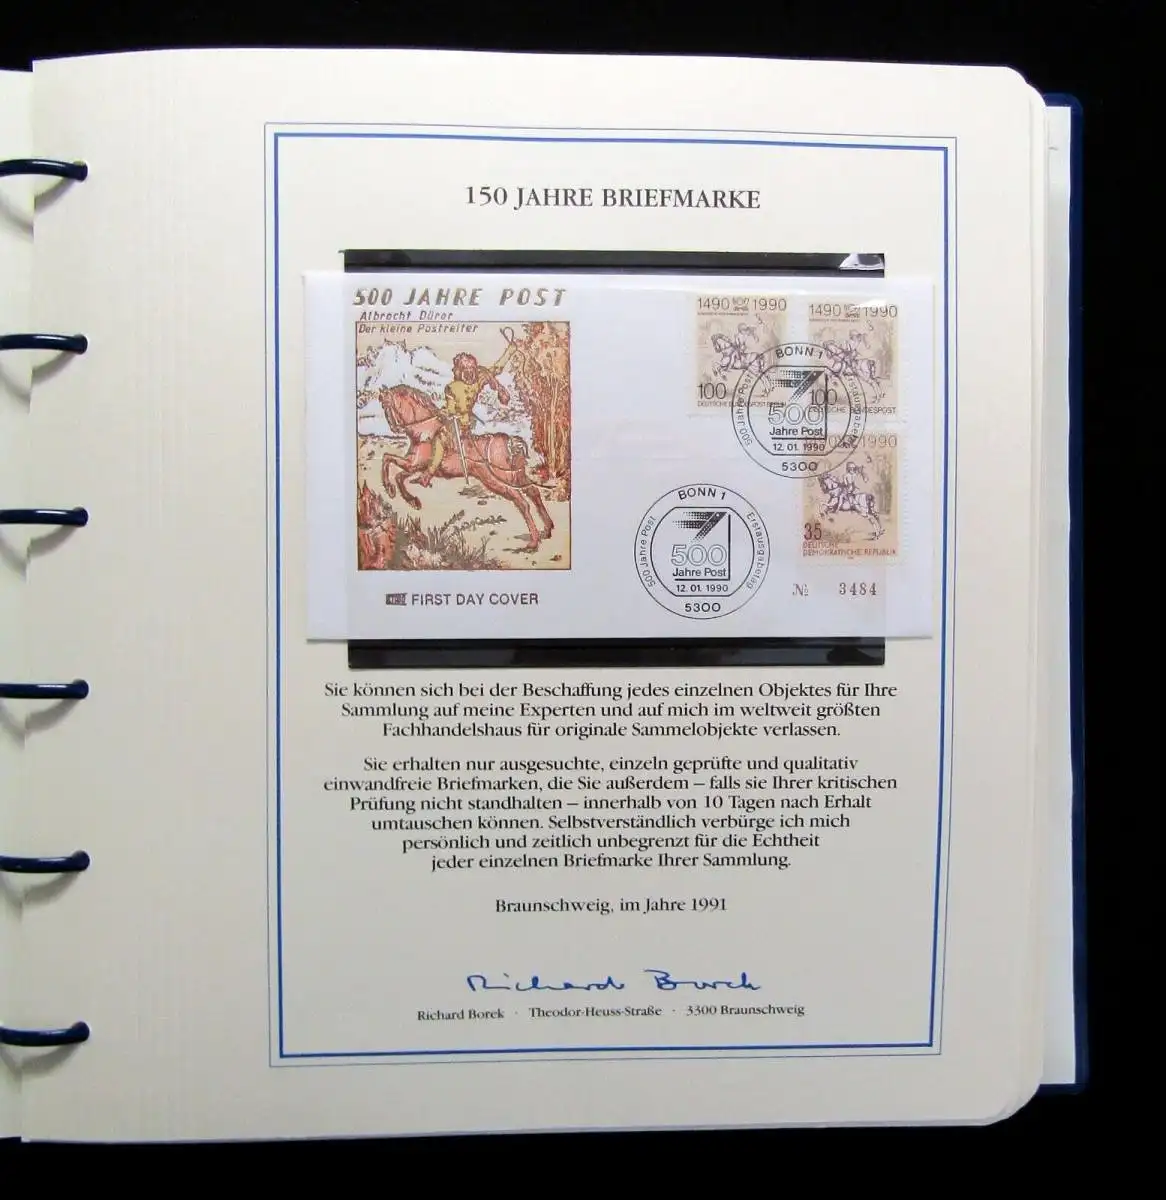 150 JAHRE BRIEFMARKE
500 JAHRE POST
Albrecht Dürer
Der kleine Postreiter
FIRST DAY COVER
1490 1990
100
DEUTSCHE BUNDESPOST BERLIN
1490 1990
100
DEUTSCHE BUNDESPOST
1990
35
DEUTSCHE
DEMOKRATISCHE REPUBLIK
BONN 1
500 Jahre Post
Erstausgabetag
500
Jahre Post
12.01.1990
5300
BONN 1
500 Jahre Post
Erstausgabetag
500
Jahre Post
12.01.1990
5300
№ 3484
Sie können sich bei der Beschaffung jedes einzelnen Objektes für Ihre
Sammlung auf meine Experten und auf mich im weltweit größten
Fachhandelshaus für originale Sammelobjekte verlassen.
Sie erhalten nur ausgesuchte, einzeln geprüfte und qualitativ
einwandfreie Briefmarken, die Sie außerdem – falls sie Ihrer kritischen
Prüfung nicht standhalten – innerhalb von 10 Tagen nach Erhalt
umtauschen können. Selbstverständlich verbürge ich mich
persönlich und zeitlich unbegrenzt für die Echtheit
jeder einzelnen Briefmarke Ihrer Sammlung.
Braunschweig, im Jahre 1991
Richard Borek
Richard Borek · Theodor-Heuss-Straße · 3300 Braunschweig